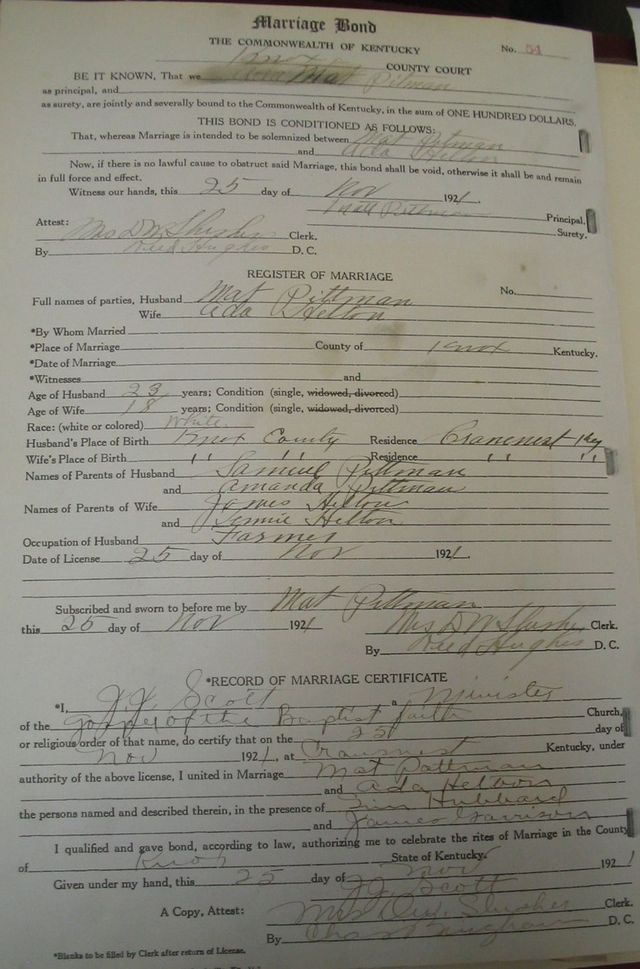 Marriage Bond
THE COMMONWEALTH OF KENTUCKY
No. 54
Knox COUNTY COURT
BE IT KNOWN, That we Mat Pitman
as principal, and
as surety, are jointly and severally bound to the Commonwealth of Kentucky, in the sum of ONE HUNDRED DOLLARS.
THIS BOND IS CONDITIONED AS FOLLOWS:
That, whereas Marriage is intended to be solemnized between Mat Pitman
and Ada Helton
Now, if there is no lawful cause to obstruct said Marriage, this bond shall be void, otherwise it shall be and remain
in full force and effect.
Witness our hands, this 25 day of Nov 1921.
Matt Pittman Principal.
Attest: Surety.
Mrs D W Slusher Clerk.
By Reed Hughes D. C.
REGISTER OF MARRIAGE
Full names of parties, Husband Mat Pittman No.
Wife Ada Helton
*By Whom Married
*Place of Marriage County of Knox Kentucky.
*Date of Marriage
*Witnesses and
Age of Husband 23 years; Condition (single, widowed, divorced)
Age of Wife 18 years; Condition (single, widowed, divorced)
Race: (white or colored) White
Husband's Place of Birth Knox County Residence Cranenest Ky
Wife's Place of Birth " " Residence " "
Names of Parents of Husband Samuel Pittman
and Amanda Pittman
Names of Parents of Wife James Helton
and Jennie Helton
Occupation of Husband Farmer
Date of License 25 day of Nov 1921.
Subscribed and sworn to before me by Mat Pittman
this 25 day of Nov 1921 Mrs D W Slusher Clerk.
By Reed Hughes D. C.
*RECORD OF MARRIAGE CERTIFICATE
*I, J. J. Scott a Minister
of the gospel of the Baptist faith Church,
or religious order of that name, do certify that on the 25 day of
Nov 1921, at Cranenest Kentucky, under
authority of the above license, I united in Marriage Mat Pattman
and Ada Helton
the persons named and described therein, in the presence of Hubbard
and James Garrison
I qualified and gave bond, according to law, authorizing me to celebrate the rites of Marriage in the County
of Knox State of Kentucky.
Given under my hand, this 25 day of Nov 1921
J. J. Scott
A Copy, Attest: Mrs D.W. Slusher Clerk.
By D. C.
*Blanks to be filled by Clerk after return of License.